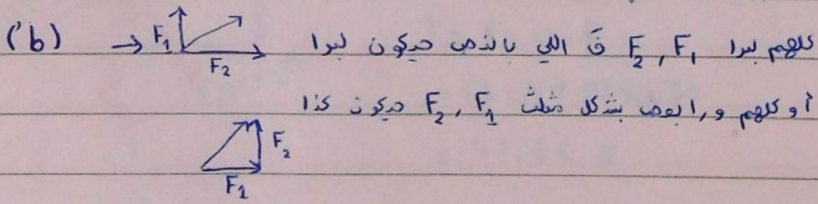 (b) → F₁ F₂ كلهم لبرا F₁ , F₂ فَ اللي بالنص حيكون لبرا
أو كلهم ورا بعض بشكل مثلث F₁ , F₂ حيكون كذا
F₂
F₁